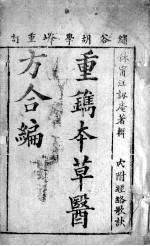 繡谷胡學峰重訂
休寧汪訒庵著輯
重鐫本草醫
方合編
內附經絡歌訣